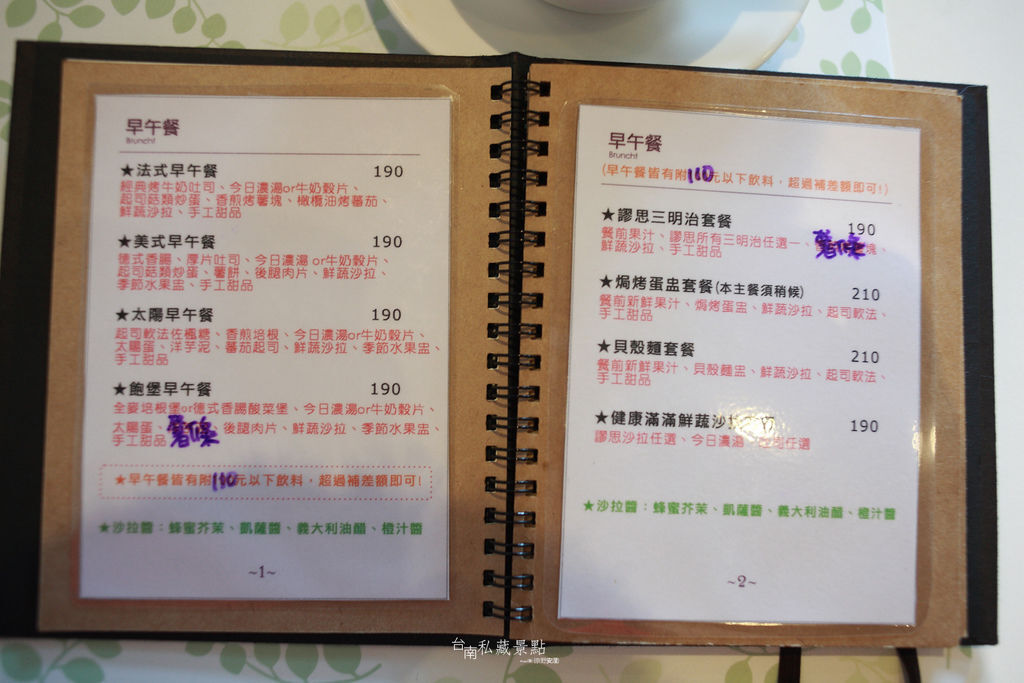 早午餐
Brunch!
★法式早午餐 190
經典烤牛奶吐司、今日濃湯or牛奶穀片、
起司菇類炒蛋、香煎烤薯塊、橄欖油烤蕃茄、
鮮蔬沙拉、手工甜品
★美式早午餐 190
德式香腸、厚片吐司、今日濃湯 or牛奶穀片、
起司菇類炒蛋、薯餅、後腿肉片、鮮蔬沙拉、
季節水果盅、手工甜品
★太陽早午餐 190
起司軟法佐楓糖、香煎培根、今日濃湯or牛奶穀片、
太陽蛋、洋芋泥、蕃茄起司、鮮蔬沙拉、季節水果盅、
手工甜品
★飽堡早午餐 190
全麥培根堡or德式香腸酸菜堡、今日濃湯or牛奶穀片、
太陽蛋、薯條、後腿肉片、鮮蔬沙拉、季節水果盅、
手工甜品
★早午餐皆有附110元以下飲料，超過補差額即可!
★沙拉醬：蜂蜜芥茉、凱薩醬、義大利油醋、橙汁醬
~1~
早午餐
Brunch!
(早午餐皆有附110元以下飲料，超過補差額即可!)
★謬思三明治套餐 190
餐前果汁、謬思所有三明治任選一、薯條、
鮮蔬沙拉、手工甜品
★焗烤蛋盅套餐(本主餐須稍候) 210
餐前新鮮果汁、焗烤蛋盅、鮮蔬沙拉、起司軟法、
手工甜品
★貝殼麵套餐 210
餐前新鮮果汁、貝殼麵盅、鮮蔬沙拉、起司軟法、
手工甜品
★健康滿滿鮮蔬沙拉 190
謬思沙拉任選、今日濃湯、任選
★沙拉醬：蜂蜜芥茉、凱薩醬、義大利油醋、橙汁醬
~2~
台南私藏景點